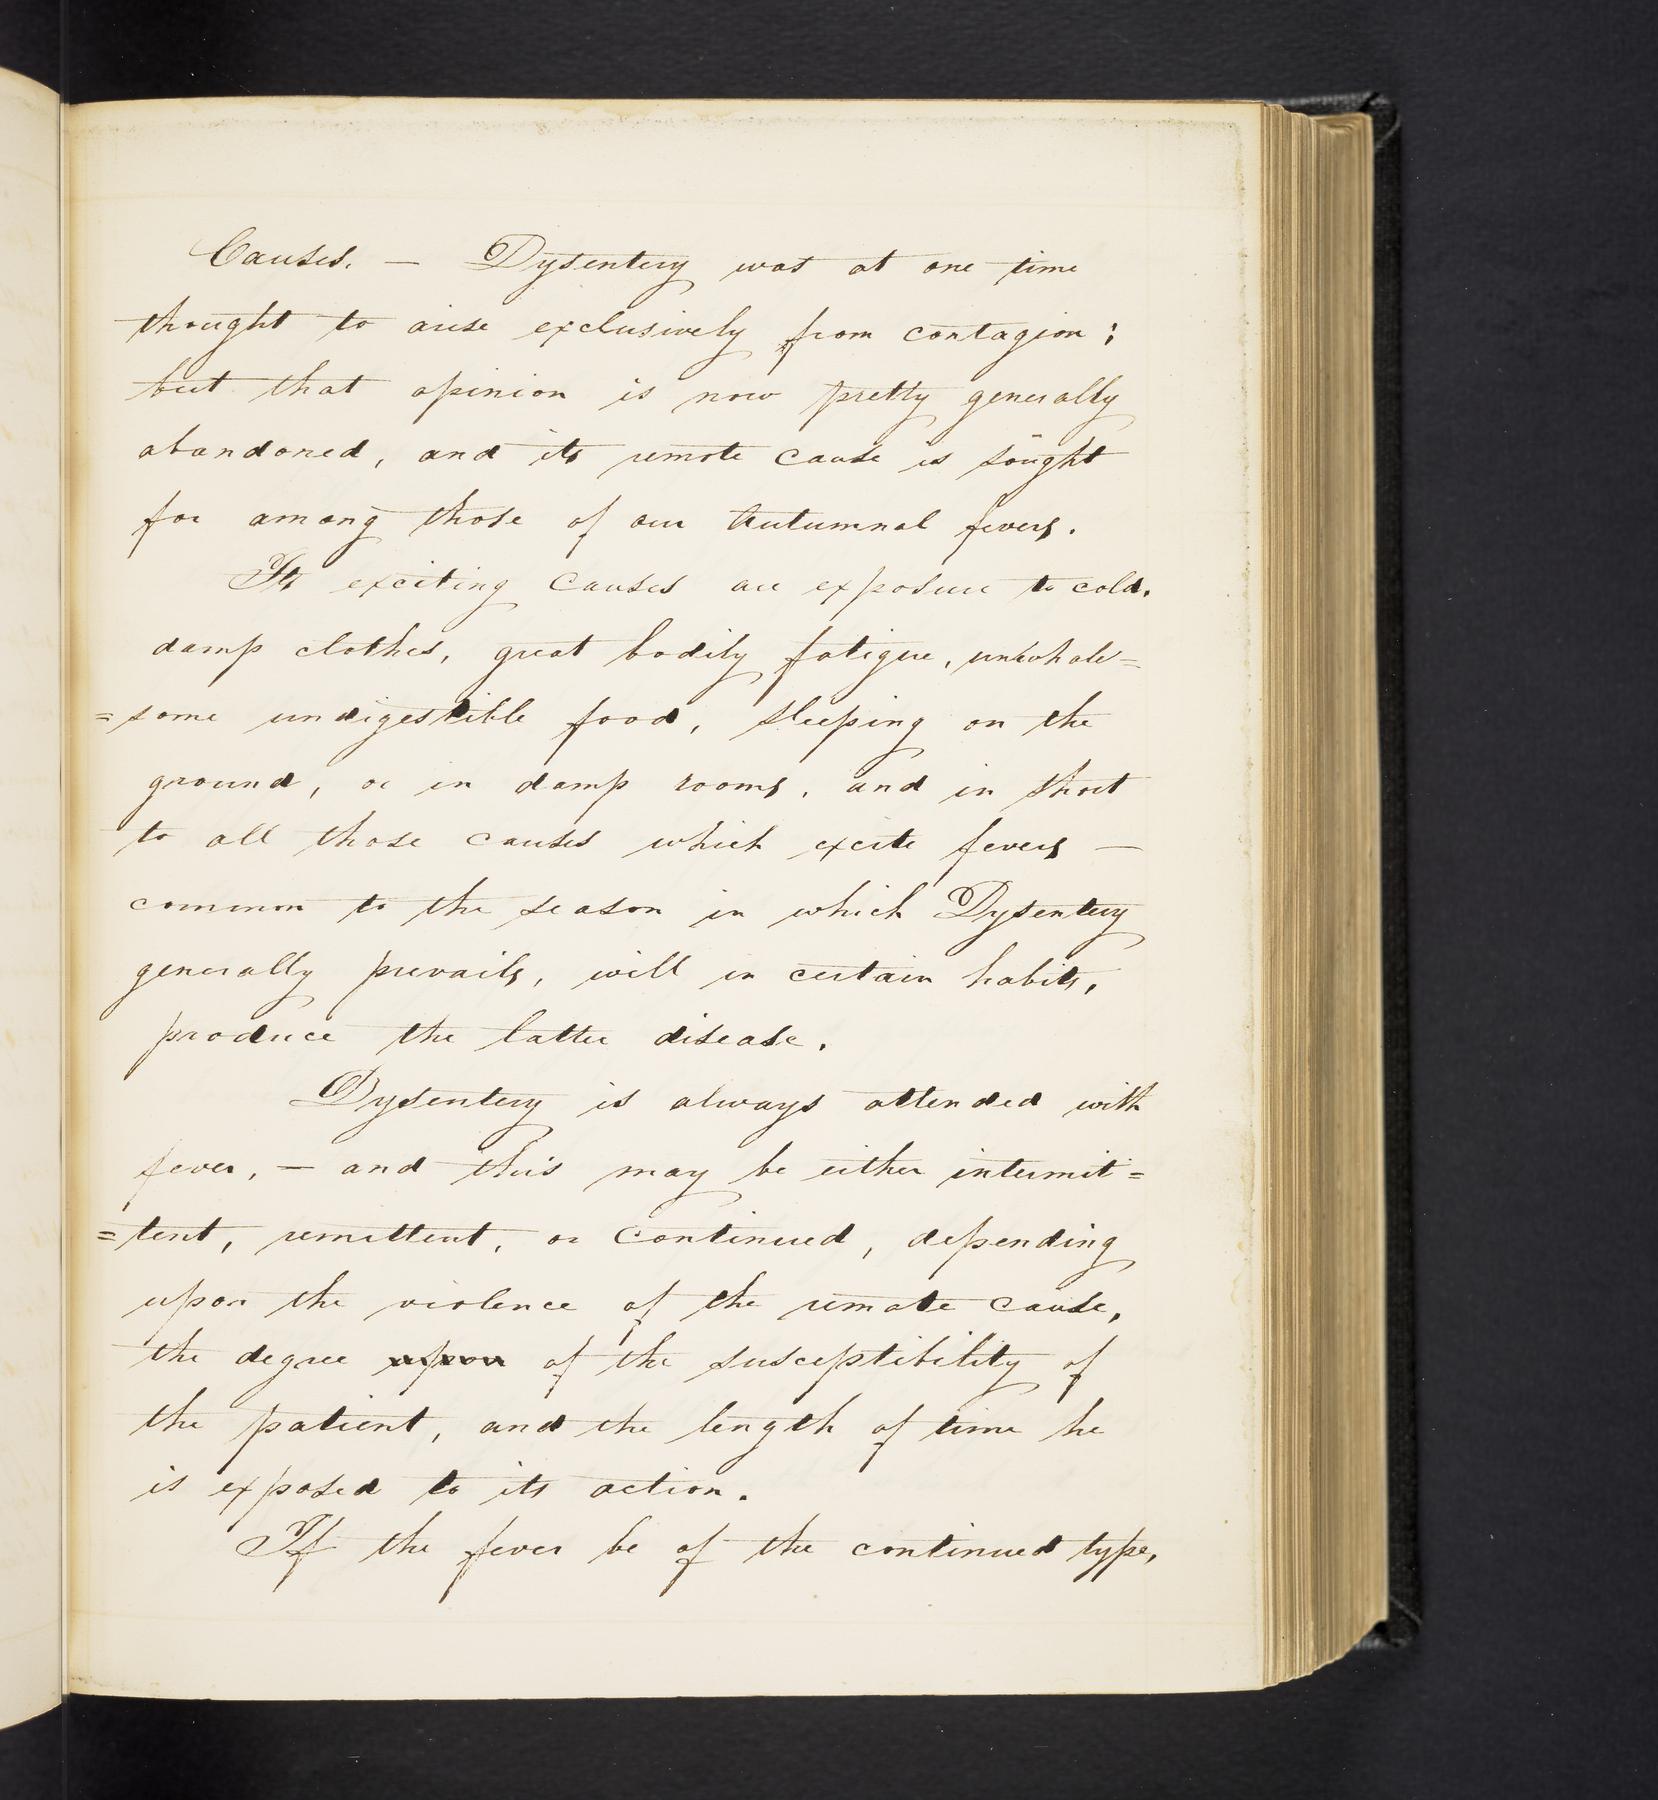 Causes. — Dysentery was at one time
thought to arise exclusively from contagion;
but that opinion is now pretty generally
abandoned, and its remote cause is sought
for among those of our Autumnal fevers.
Its exciting causes are exposure to cold.
damp clothes, great bodily fatigue, unwhole=
=some undigestible food, sleeping on the
ground, or in damp rooms, and in short
to all those causes which excite fevers —
common to the season in which Dysentery
generally prevails, will in certain habits,
produce the latter disease.
Dysentery is always attended with
fever, — and this may be either intermit=
=tent, remittent, or continued, depending
upon the violence of the remote cause,
the degree upon of the susceptibility of
the patient, and the length of time he
is exposed to its action.
If the fever be of the continued type,